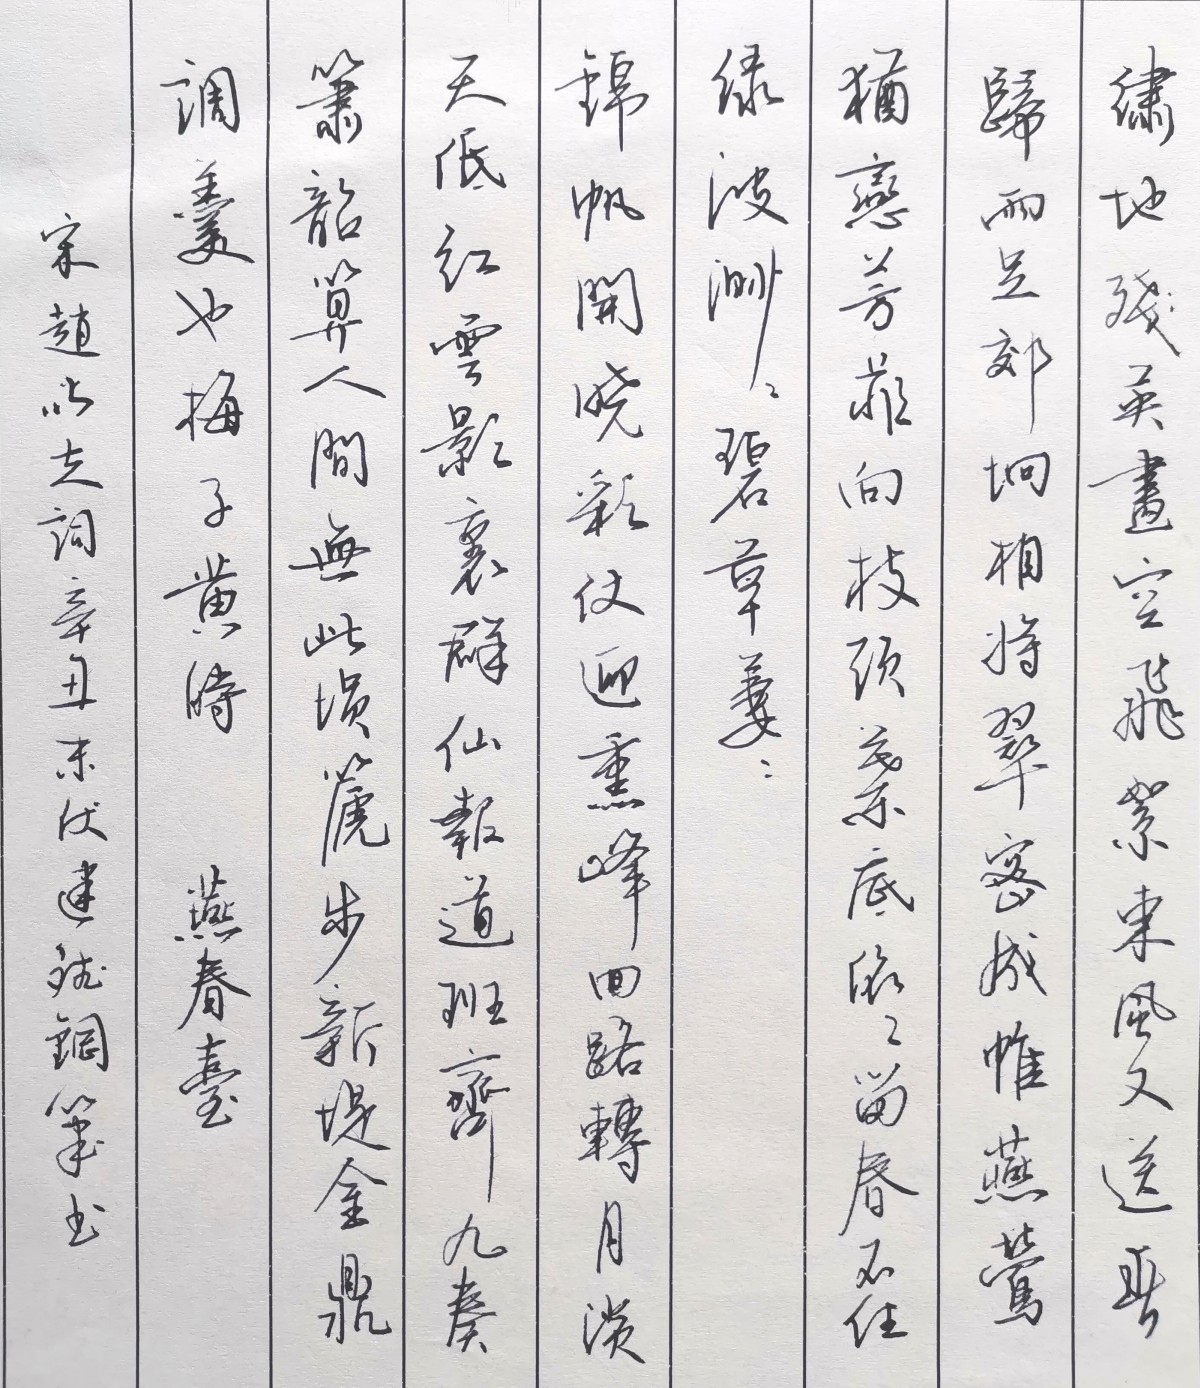 繡地殘英畫空飛絮東風又送春
歸雨足郊坰相将翠密成帷燕鶯
猶戀芳菲向枝頭葉底依〻留春不住
绿波渺〻碧草萋〻
錦帆開曉彩仗迎熏峰回路轉月淡
天低红雲影裏群仙報道班齊九奏
簫韶算人間無此埙篪步新堤金鼎
調羹也梅子黄時 燕春臺
宋趙以夫詞辛丑末伏建鋼筆书